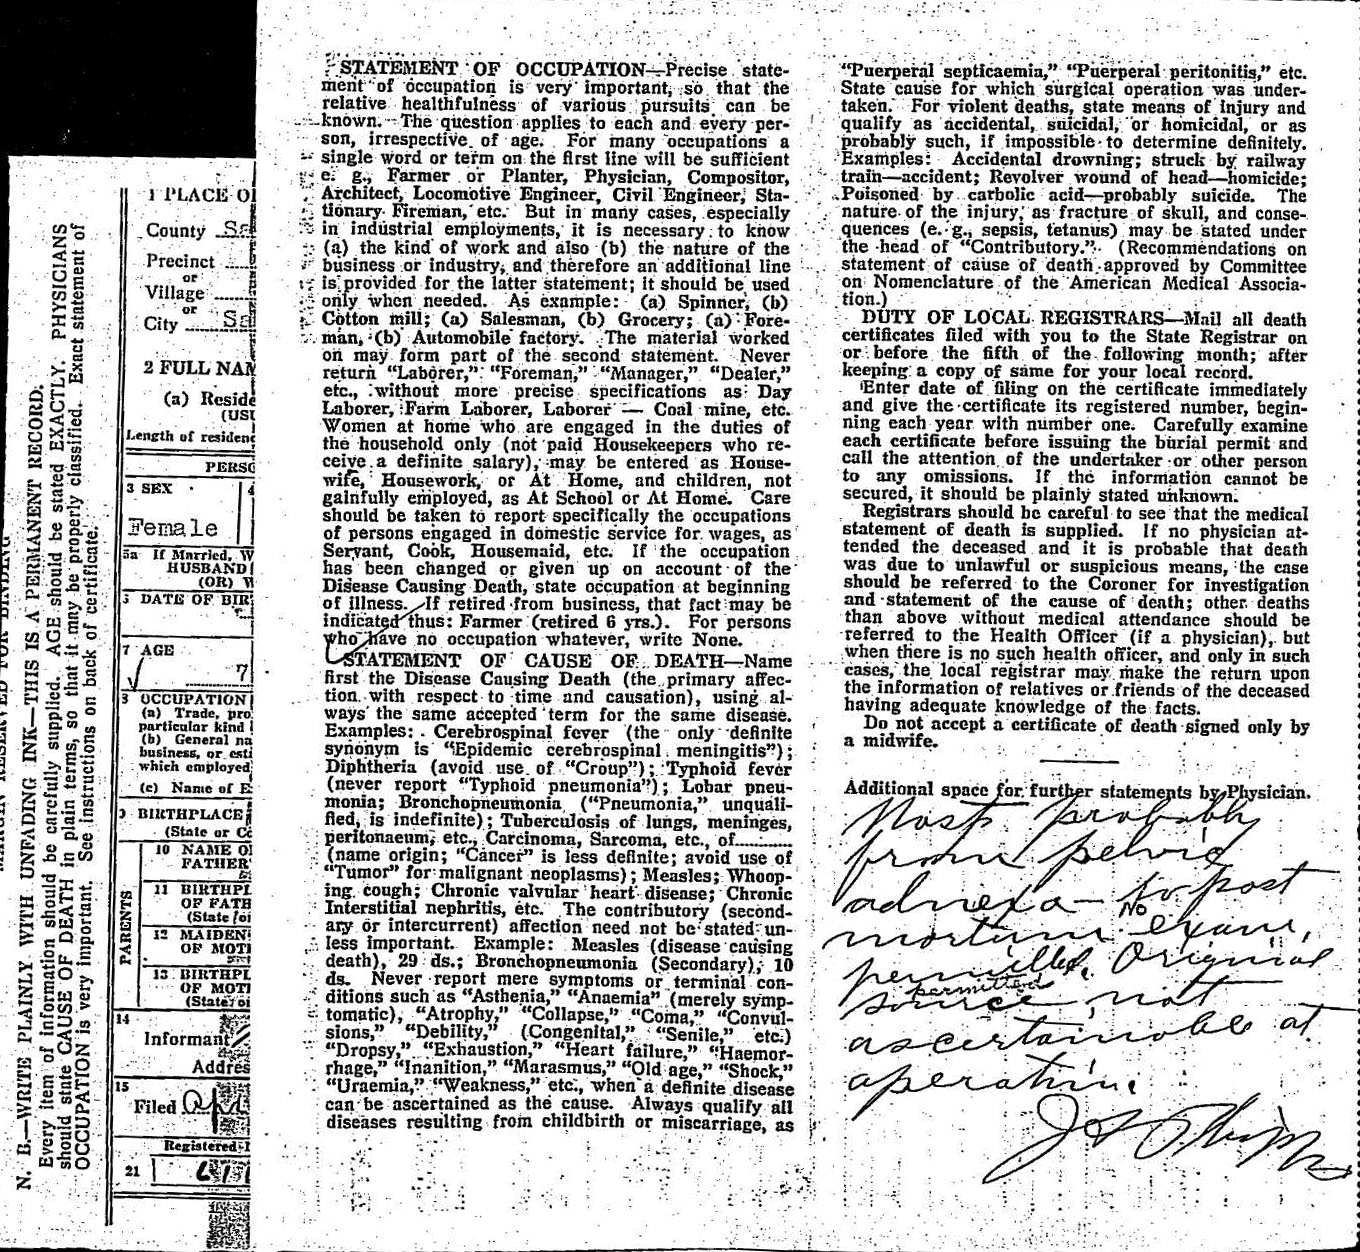 N. B.—WRITE PLAINLY WITH UNFADING INK—THIS IS A PERMANENT RECORD.
Every item of information should be carefully supplied. AGE should be stated EXACTLY. PHYSICIANS
should state CAUSE OF DEATH in plain terms, so that it may be properly classified. Exact statement of
OCCUPATION is very important. See instructions on back of certificate.
1 PLACE O
County Sa
Precinct
or
Village
or
City Sa
2 FULL NAM
(a) Reside
(USU
Length of residenc
PERSO
3 SEX
4
Female
5a If Married, W
HUSBAND
(OR) W
DATE OF BIR
7 AGE
7
8 OCCUPATION
(a) Trade, pro
particular kind
(b) General na
business, or est
which employed
(c) Name of E
9 BIRTHPLACE
(State or Co
PARENTS
10 NAME O
FATHER
11 BIRTHPL
OF FATH
(State or
12 MAIDEN
OF MOT
13 BIRTHPL
OF MOT
(State or
14
Informant
Addres
15
Filed Apr
Registered
21
STATEMENT OF OCCUPATION—Precise state-
ment of occupation is very important, so that the
relative healthfulness of various pursuits can be
known. The question applies to each and every per-
son, irrespective of age. For many occupations a
single word or term on the first line will be sufficient
e. g., Farmer or Planter, Physician, Compositor,
Architect, Locomotive Engineer, Civil Engineer, Sta-
tionary Fireman, etc. But in many cases, especially
in industrial employments, it is necessary to know
(a) the kind of work and also (b) the nature of the
business or industry, and therefore an additional line
is provided for the latter statement; it should be used
only when needed. As example: (a) Spinner, (b)
Cotton mill; (a) Salesman, (b) Grocery; (a) Fore-
man, (b) Automobile factory. The material worked
on may form part of the second statement. Never
return "Laborer," "Foreman," "Manager," "Dealer,"
etc., without more precise specifications as Day
Laborer, Farm Laborer, Laborer — Coal mine, etc.
Women at home who are engaged in the duties of
the household only (not paid Housekeepers who re-
ceive a definite salary), may be entered as House-
wife, Housework, or At Home, and children, not
gainfully employed, as At School or At Home. Care
should be taken to report specifically the occupations
of persons engaged in domestic service for wages, as
Servant, Cook, Housemaid, etc. If the occupation
has been changed or given up on account of the
Disease Causing Death, state occupation at beginning
of illness. If retired from business, that fact may be
indicated thus: Farmer (retired 6 yrs.). For persons
who have no occupation whatever, write None.
STATEMENT OF CAUSE OF DEATH—Name
first the Disease Causing Death (the primary affec-
tion with respect to time and causation), using al-
ways the same accepted term for the same disease.
Examples: Cerebrospinal fever (the only definite
synonym is "Epidemic cerebrospinal meningitis");
Diphtheria (avoid use of "Croup"); Typhoid fever
(never report "Typhoid pneumonia"); Lobar pneu-
monia; Bronchopneumonia ("Pneumonia," unquali-
fied, is indefinite); Tuberculosis of lungs, meninges,
peritonaeum, etc., Carcinoma, Sarcoma, etc., of............
(name origin; "Cancer" is less definite; avoid use of
"Tumor" for malignant neoplasms); Measles; Whoop-
ing cough; Chronic valvular heart disease; Chronic
Interstitial nephritis, etc. The contributory (second-
ary or intercurrent) affection need not be stated un-
less important. Example: Measles (disease causing
death), 29 ds.; Bronchopneumonia (Secondary), 10
ds. Never report mere symptoms or terminal con-
ditions such as "Asthenia," "Anaemia" (merely symp-
tomatic), "Atrophy," "Collapse," "Coma," "Convul-
sions," "Debility," (Congenital," "Senile," etc.)
"Dropsy," "Exhaustion," "Heart failure," "Haemor-
rhage," "Inanition," "Marasmus," "Old age," "Shock,"
"Uraemia," "Weakness," etc., when a definite disease
can be ascertained as the cause. Always qualify all
diseases resulting from childbirth or miscarriage, as
"Puerperal septicaemia," "Puerperal peritonitis," etc.
State cause for which surgical operation was under-
taken. For violent deaths, state means of injury and
qualify as accidental, suicidal, or homicidal, or as
probably such, if impossible to determine definitely.
Examples: Accidental drowning; struck by railway
train—accident; Revolver wound of head—homicide;
Poisoned by carbolic acid—probably suicide. The
nature of the injury, as fracture of skull, and conse-
quences (e. g., sepsis, tetanus) may be stated under
the head of "Contributory." (Recommendations on
statement of cause of death approved by Committee
on Nomenclature of the American Medical Associa-
tion.)
DUTY OF LOCAL REGISTRARS—Mail all death
certificates filed with you to the State Registrar on
or before the fifth of the following month; after
keeping a copy of same for your local record.
Enter date of filing on the certificate immediately
and give the certificate its registered number, begin-
ning each year with number one. Carefully examine
each certificate before issuing the burial permit and
call the attention of the undertaker or other person
to any omissions. If the information cannot be
secured, it should be plainly stated unknown.
Registrars should be careful to see that the medical
statement of death is supplied. If no physician at-
tended the deceased and it is probable that death
was due to unlawful or suspicious means, the case
should be referred to the Coroner for investigation
and statement of the cause of death; other deaths
than above without medical attendance should be
referred to the Health Officer (if a physician), but
when there is no such health officer, and only in such
cases, the local registrar may make the return upon
the information of relatives or friends of the deceased
having adequate knowledge of the facts.
Do not accept a certificate of death signed only by
a midwife.
Additional space for further statements by Physician.
Most probably
from pelvic
adnexa — post
No
mortum exam,
permitted. Original
permitted
source not
ascertainable at
operation.